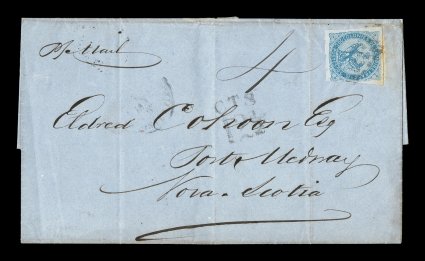 Pr Mail
4
CTS
Eldred Cohoon Esq
Port Medway
Nova-Scotia